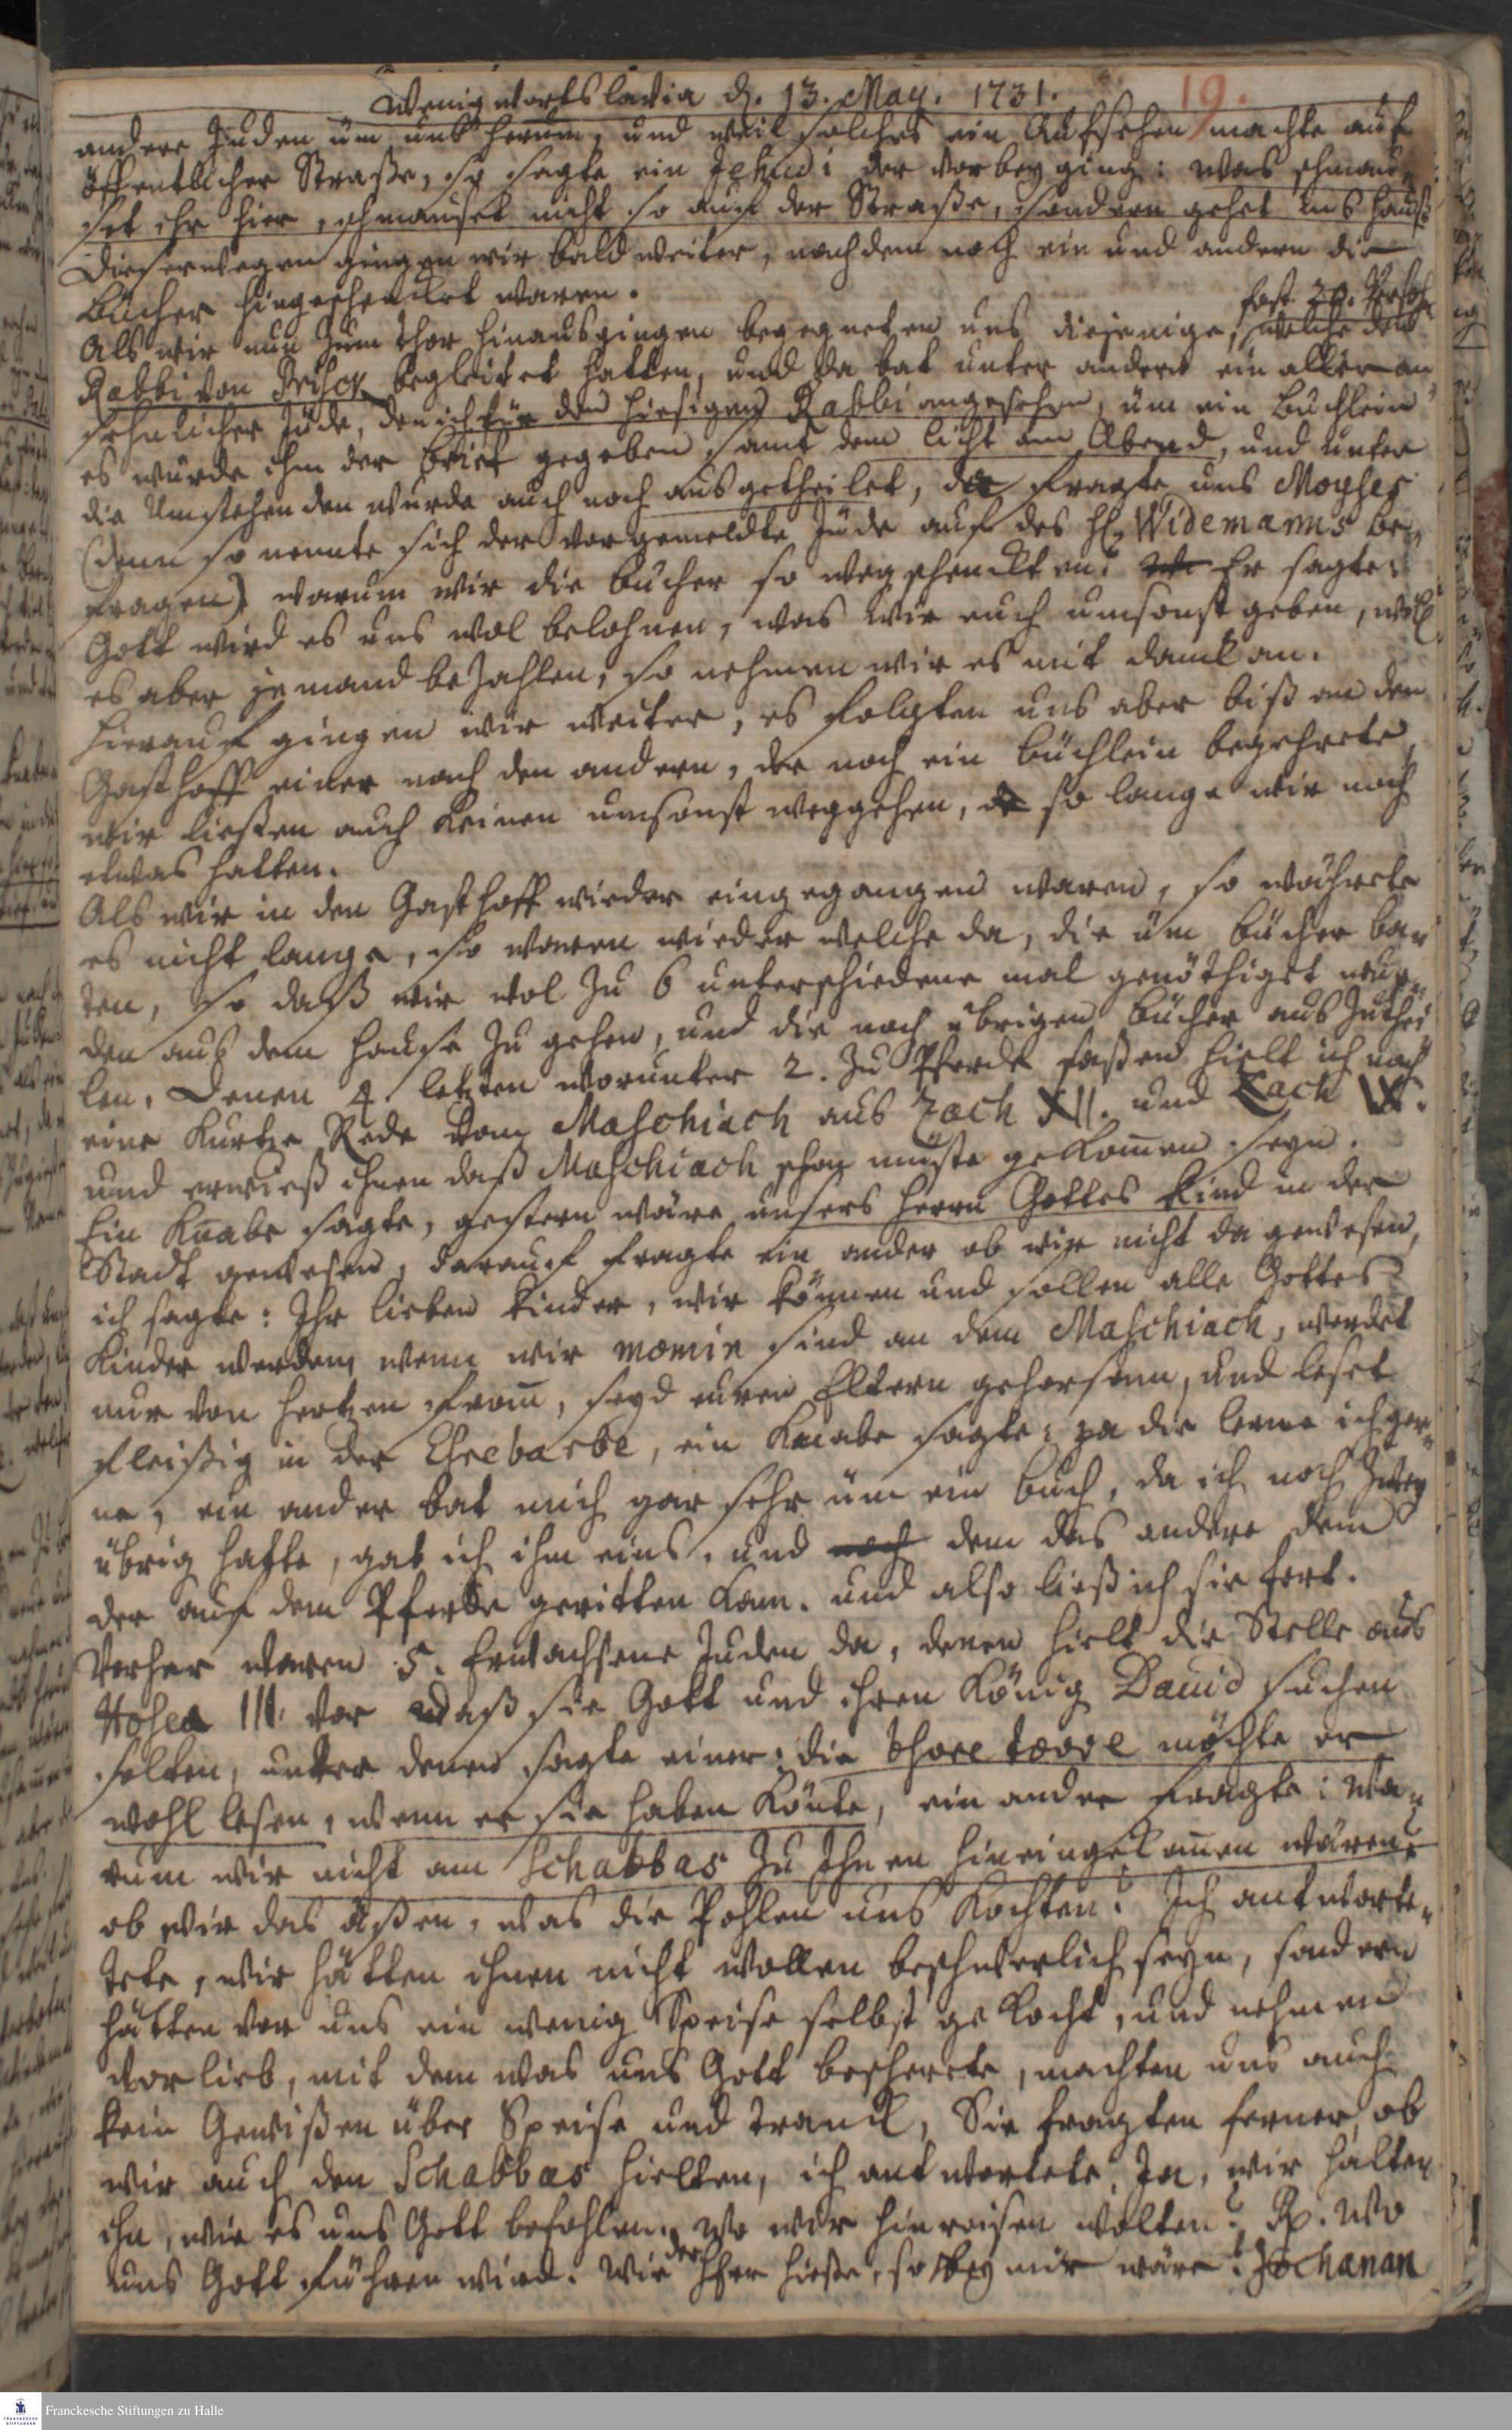 Wenigwortslavia d. 13. May. 1731. 19.
andere Juden üm uns herum, und weil solches ein Aufsehen machte auf
öffentlicher Straße, so sagte ein Jehudi der vorbey ging: was schmau¬
set ihr hier, schmauset nicht so auf der Straße, sondern gehet ins Hauß
Dieserwegen gingen wir bald weiter, nachdem noch ein und andern die
Bücher hingeschencket waren.
Als wir nun zum Thor hinausgingen begegneten uns diejenige, fast 20. Persohn welche den
Rabbi von begleitet hatten, und da bat unter andern ein alter an¬
sehnlicher Jude, den ich für den hiesigen Rabbi angesehen, üm ein Büchlein
es wurde ihm der Brief gegeben samt dem Licht am Abend, und unter
die Umstehenden wurde auch noch ausgetheilet, da fragte uns Moyses
(denn so nennte sich der vorgemeldte Jude auf des H. Widemanns be¬
fragen) warum wir die Bücher so wegschenckten? Er sagte:
Gott wird es uns wol belohnen, was wir euch umsonst geben, will
es aber jemand bezahlen, so nehmen wir es mit danck an.
Hierauf gingen wir weiter, es folgten uns aber biß an den
Gasthoff einer nach den andern, der noch ein Büchlein begehrete,
wir ließen auch keinen umsonst weggehen, so lange wir noch
etwas hatten.
Als wir in den Gasthoff wieder eingegangen waren, so währete
es nicht lange, so waren wieder welche da, die üm Bücher ba¬
ten, so daß wir wol zu 6 unterschiedene mal genöthiget wur¬
den aus dem Hause zu gehen, und die noch übrigen Bücher auszuthei
len. Denen 4 letzten worunter 2. zu Pferde saßen hielt ich noch
eine kurtze Rede vom Maschiach aus Zach XII. und Zach IX.
und erwieß ihnen daß Maschiach schon müste gekommen seyn.
Ein Knabe sagte, gestern wäre unsers Herrn Gottes Kind in der
Stadt gewesen, darauf fragte ein ander ob wir nicht da gewesen,
ich sagte: Ihr lieben Kinder, wir können und sollen alle Gottes
Kinder werden, wenn wir momin sind an dem Maschiach, werdet
nur von Hertzen from, seyd euren Eltern gehorsam, und leset
fleißig in der Esrebarbe, ein Knabe sagte: ja die lerne ich ger¬
ne, ein ander bat mich gar sehr üm ein Buch, da ich noch zwey
übrig hatte, gab ich ihm eins, und noch dem das andere dem
der auf dem Pferde geritten kam. und also ließ ich sie fort.
Vorher waren 5. Erwachsene Juden da, denen hielt die Stelle aus
Hosea III. vor daß sie Gott und ihren König David suchen
solten, unter denen sagte einer: die thore toove möchte er
wohl lesen, wenn er sie haben könte, ein ander fragte: wa¬
rum wir nicht am Schabbas zu Ihnen hineingekommen wären,
ob wir das äßen, was die Pohlen uns kochten? Ich antworte¬
tete, wir hätten ihnen nicht wollen beschwerlich seyn, sondern
hätten vor uns ein wenig Speise selbst gekocht, und nehmen
vorlieb, mit dem was uns Gott bescherete, machten uns auch
kein Gewißen über Speise und Tranck, Sie fragten ferner, ob
wir auch den Schabbas hielten, ich antwortete, Ja, wir halten
ihn, wie es uns Gott befohlen. Wo wir hinreisen wolten? Rp. Wo
uns Gott führen wird. Wie der hieße, so bey mir wäre? Jochanan
Franckesche Stiftungen zu Halle